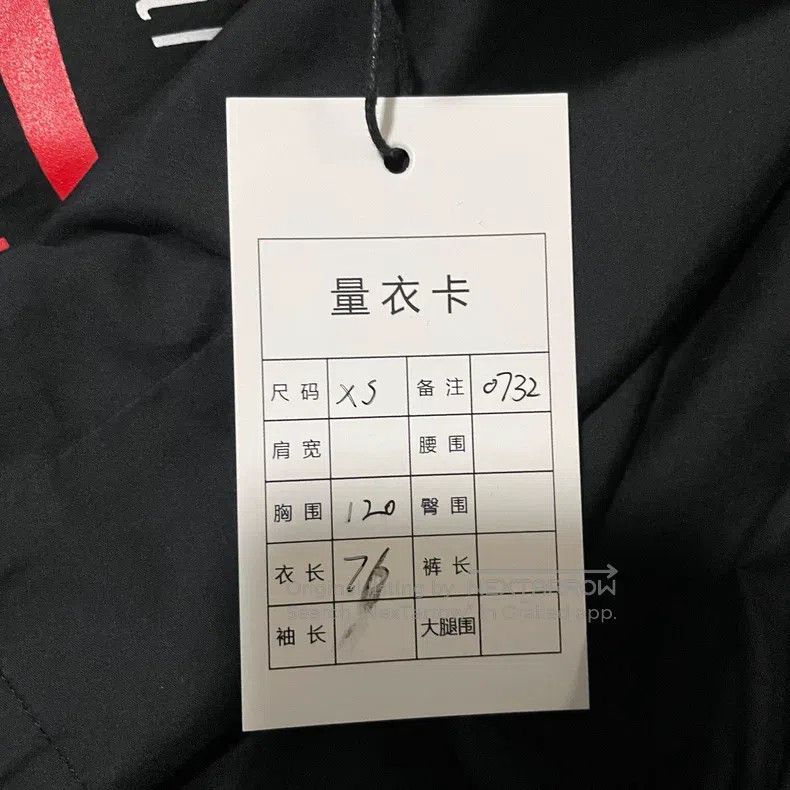 量衣卡
尺码 XS 备注 0732
肩宽 腰围
胸围 120 臀围
衣长 76 裤长
袖长 大腿围
Original listing by NEXTARROW
Search 'NexTarrow' in Grailed app.